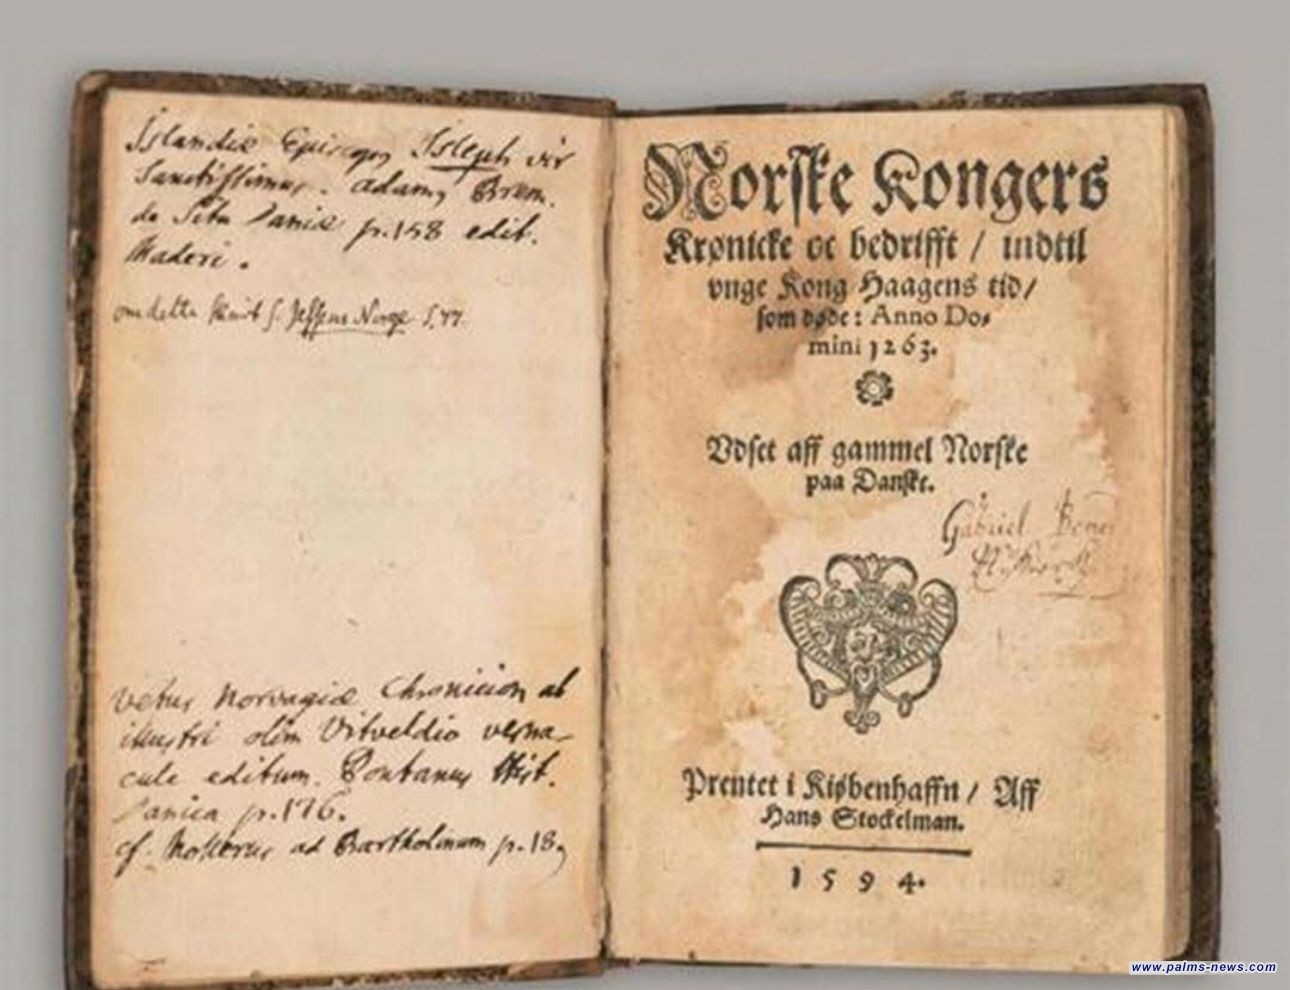 Islandiæ Episcopus Isleph vir
Sanctissimus. Adamus Brem.
de Situ Daniæ p. 158 edit.
Maderi.
om dette
Vetus Norvagiæ Chronicion ab
illustri olim Vitveldio verna-
cule editum. Pontanus Hist.
Danica p. 176.
cf. ad Bartholinum p. 18
Norſke Kongers
Krønicke oc bedrifft / indtil
vnge Kong Haagens tid /
ſom døde: Anno Do-
mini 1263.
Vdſet aff gammel Norſke
paa Danſke.
Gabriel
Prentet i Kiøbenhaffn / Aff
Hans Stockelman.
1594.
www.palms-news.com